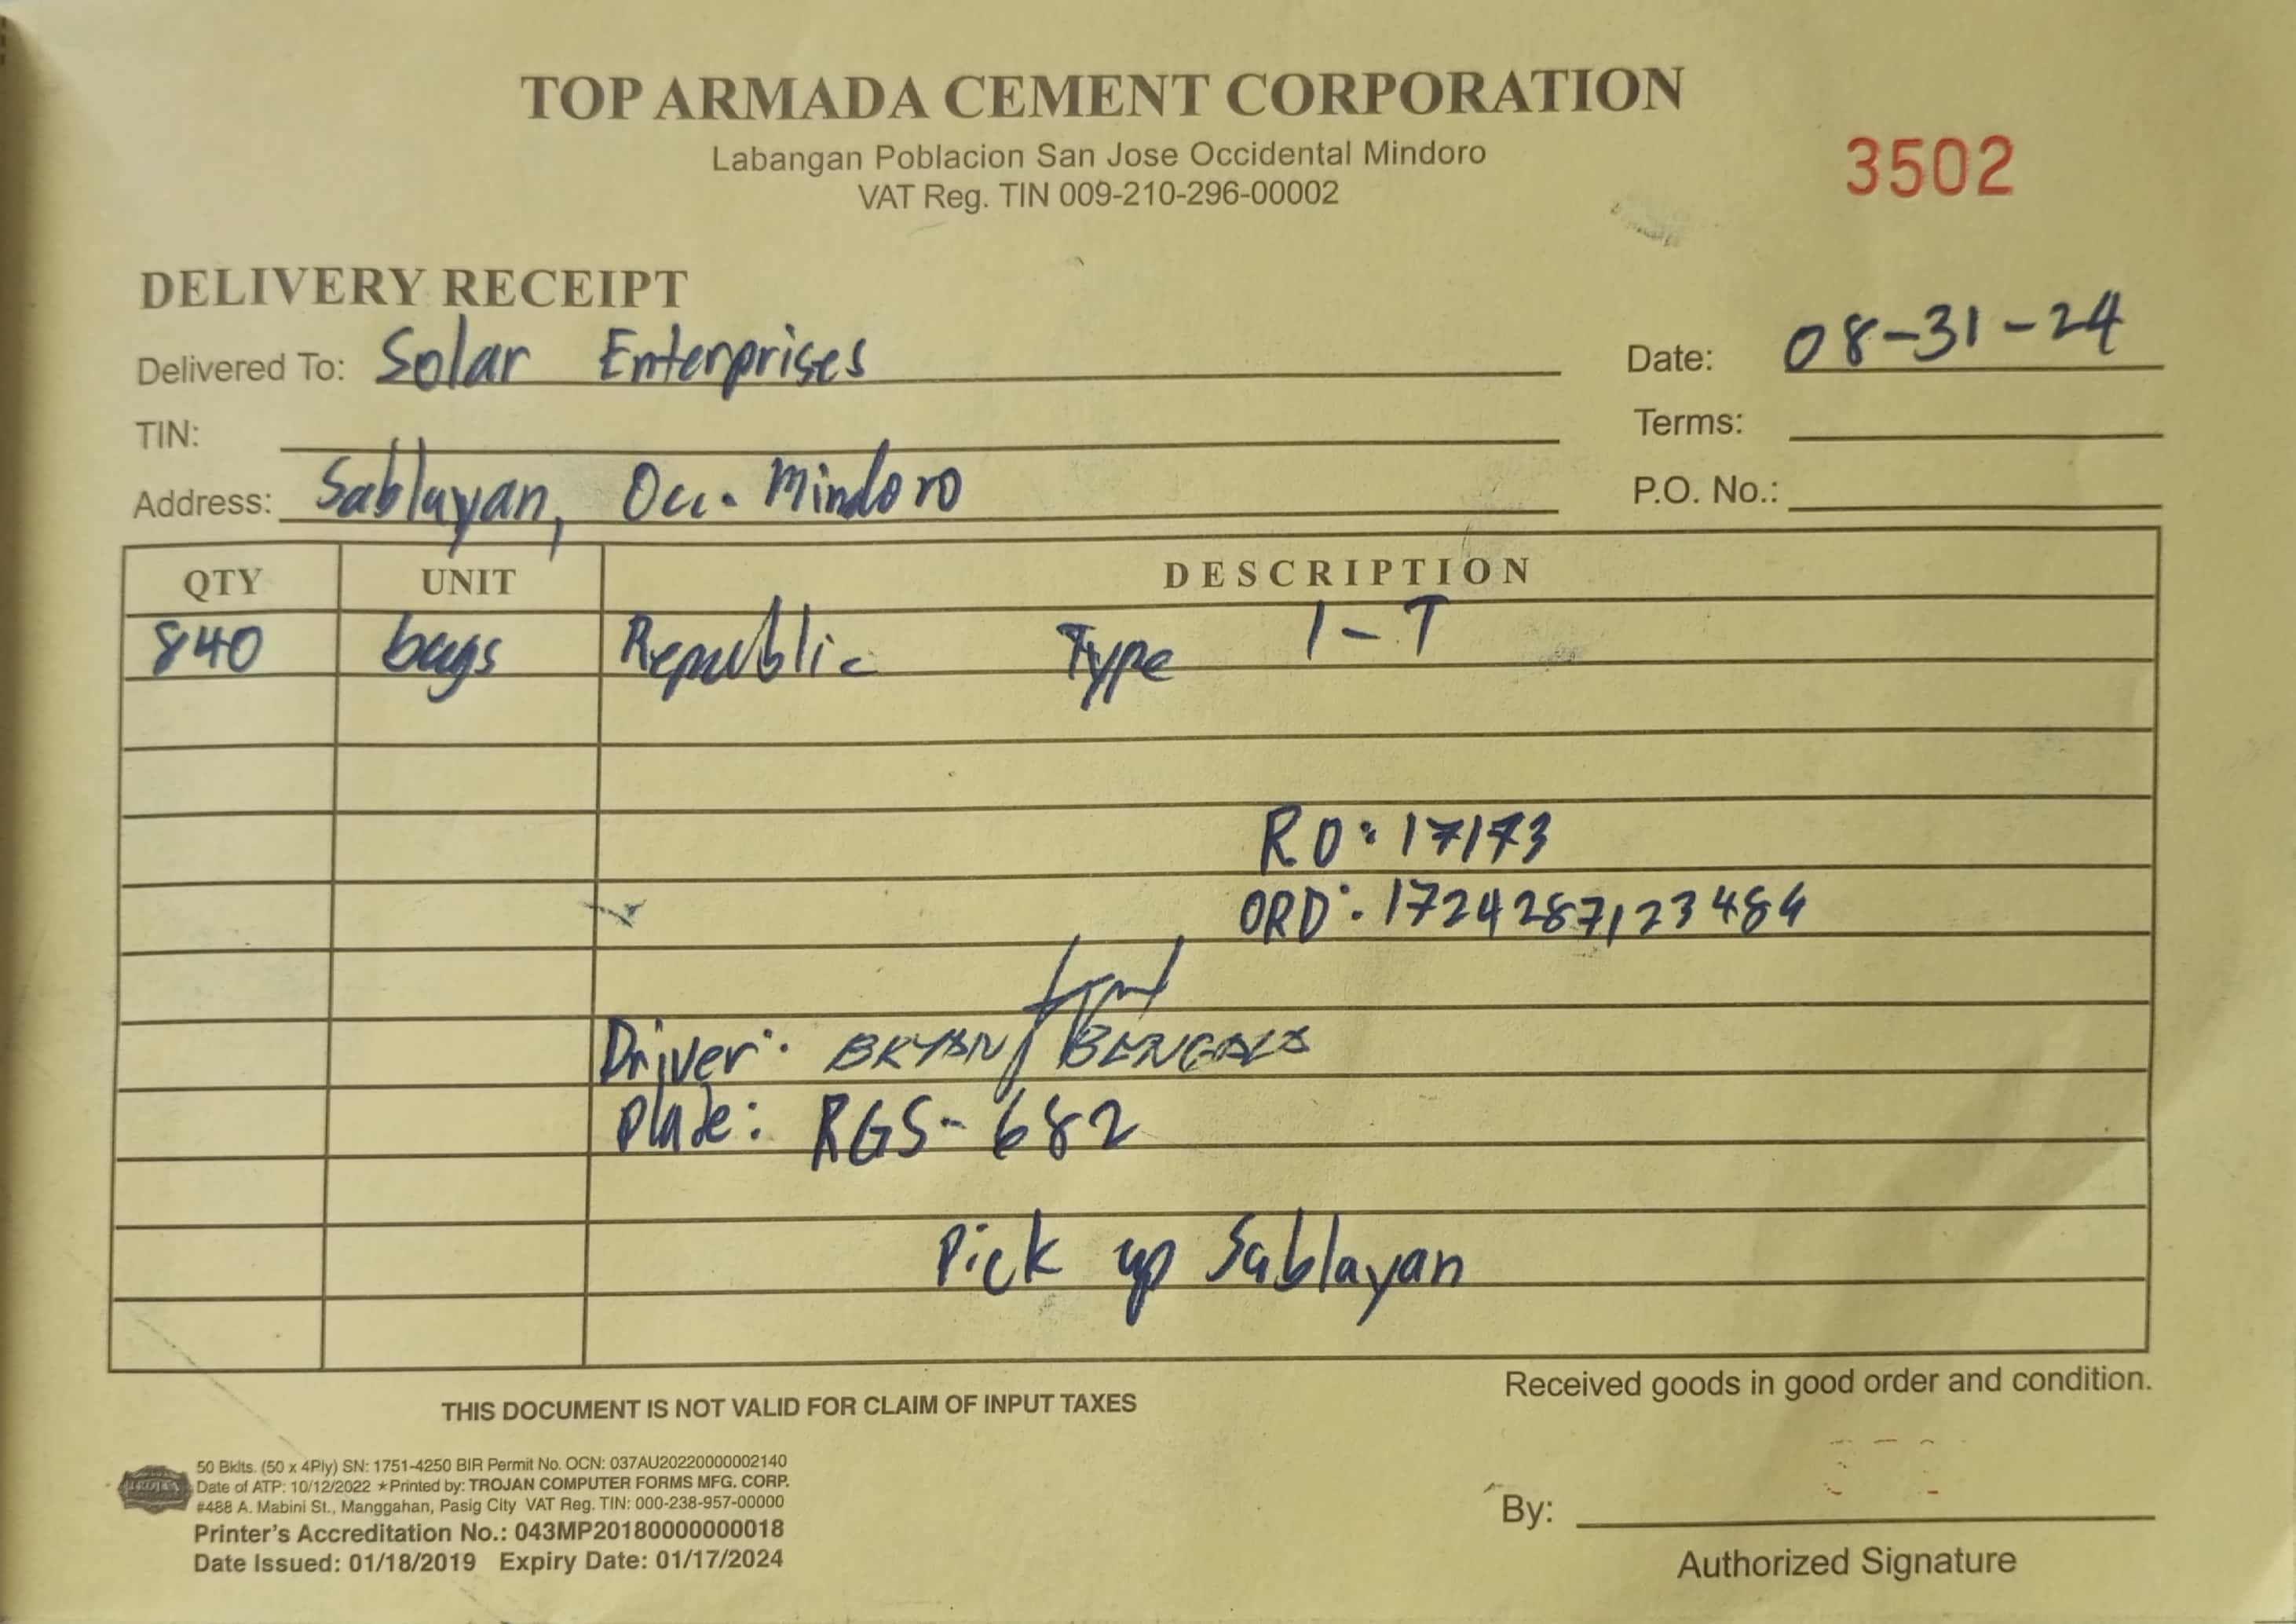 TOP ARMADA CEMENT CORPORATION
Labangan Poblacion San Jose Occidental Mindoro
VAT Reg. TIN 009-210-296-00002
3502
DELIVERY RECEIPT
Delivered To: Solar Enterprises
Date: 08-31-24
TIN:
Terms:
Address: Sablayan, Occ. Mindoro
P.O. No.:
QTY UNIT DESCRIPTION
840 bags Republic Type 1-T
RO: 17173
ORD: 1724287123484
Driver: BRYAN
Plate: RGS-682
Pick up Sablayan
Received goods in good order and condition.
THIS DOCUMENT IS NOT VALID FOR CLAIM OF INPUT TAXES
50 Bklts. (50 x 4Ply) SN: 1751-4250 BIR Permit No. OCN: 037AU20220000002140
Date of ATP: 10/12/2022 ★Printed by: TROJAN COMPUTER FORMS MFG. CORP.
TROJAN
#488 A. Mabini St., Manggahan, Pasig City VAT Reg. TIN: 000-238-957-00000
Printer's Accreditation No.: 043MP20180000000018
Date Issued: 01/18/2019 Expiry Date: 01/17/2024
By:
Authorized Signature